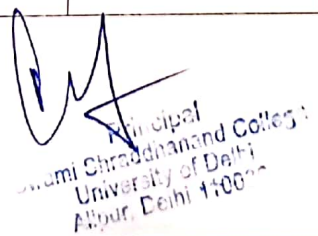 Principal
Swami Shraddhanand College
University of Delhi
Alipur, Delhi